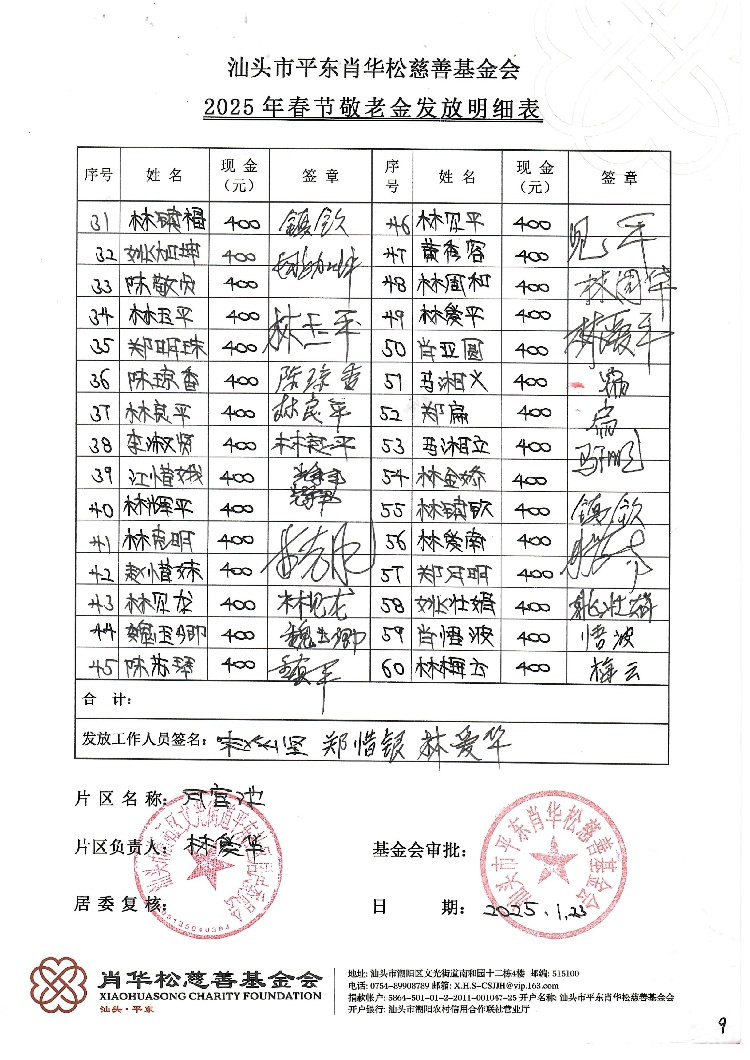 汕头市平东肖华松慈善基金会
2025年春节敬老金发放明细表
序号 姓名 现金（元） 签章 序号 姓名 现金（元） 签章
31 林镇福 400 镇钦 46 林见平 400 见平
32 400 47 黄秀容 400
33 陈敬贞 400 48 林周和 400
34 林玉平 400 林玉平 49 林爱平 400 林爱平
35 郑明珠 400 50 肖亚圆 400
36 陈琼香 400 陈琼香 51 马湘义 400
37 林良平 400 林良平 52 郑扁 400 扁
38 李淑贤 400 53 马湘立 400
39 江惜娥 400 54 林金娇 400
40 林辉平 400 55 林镇钦 400 镇钦
41 林克明 400 56 林爱南 400
42 赵惜妹 400 57 郑月明 400
43 林见龙 400 林见龙 58 姚壮娟 400
44 魏玉卿 400 魏玉卿 59 肖惜波 400 惜波
45 陈苏琴 400 60 林梅云 400 梅云
合计：
发放工作人员签名： 郑惜银 林爱华
片区名称：
片区负责人：林爱华 基金会审批：
居委复核： 日期：2025.1.23
汕头市平东肖华松慈善基金会
肖华松慈善基金会
XIAOHUASONG CHARITY FOUNDATION
汕头·平东
地址：汕头市潮阳区文光街道南和园十二栋4楼 邮编：515100
电话：0754-89908789 邮箱：X.H.S-CSJJH@vip.163.com
捐款帐户：5864-501-01-2-2011-001047-25 开户名称：汕头市平东肖华松慈善基金会
开户银行：汕头市潮阳农村信用合作联社营业厅
9